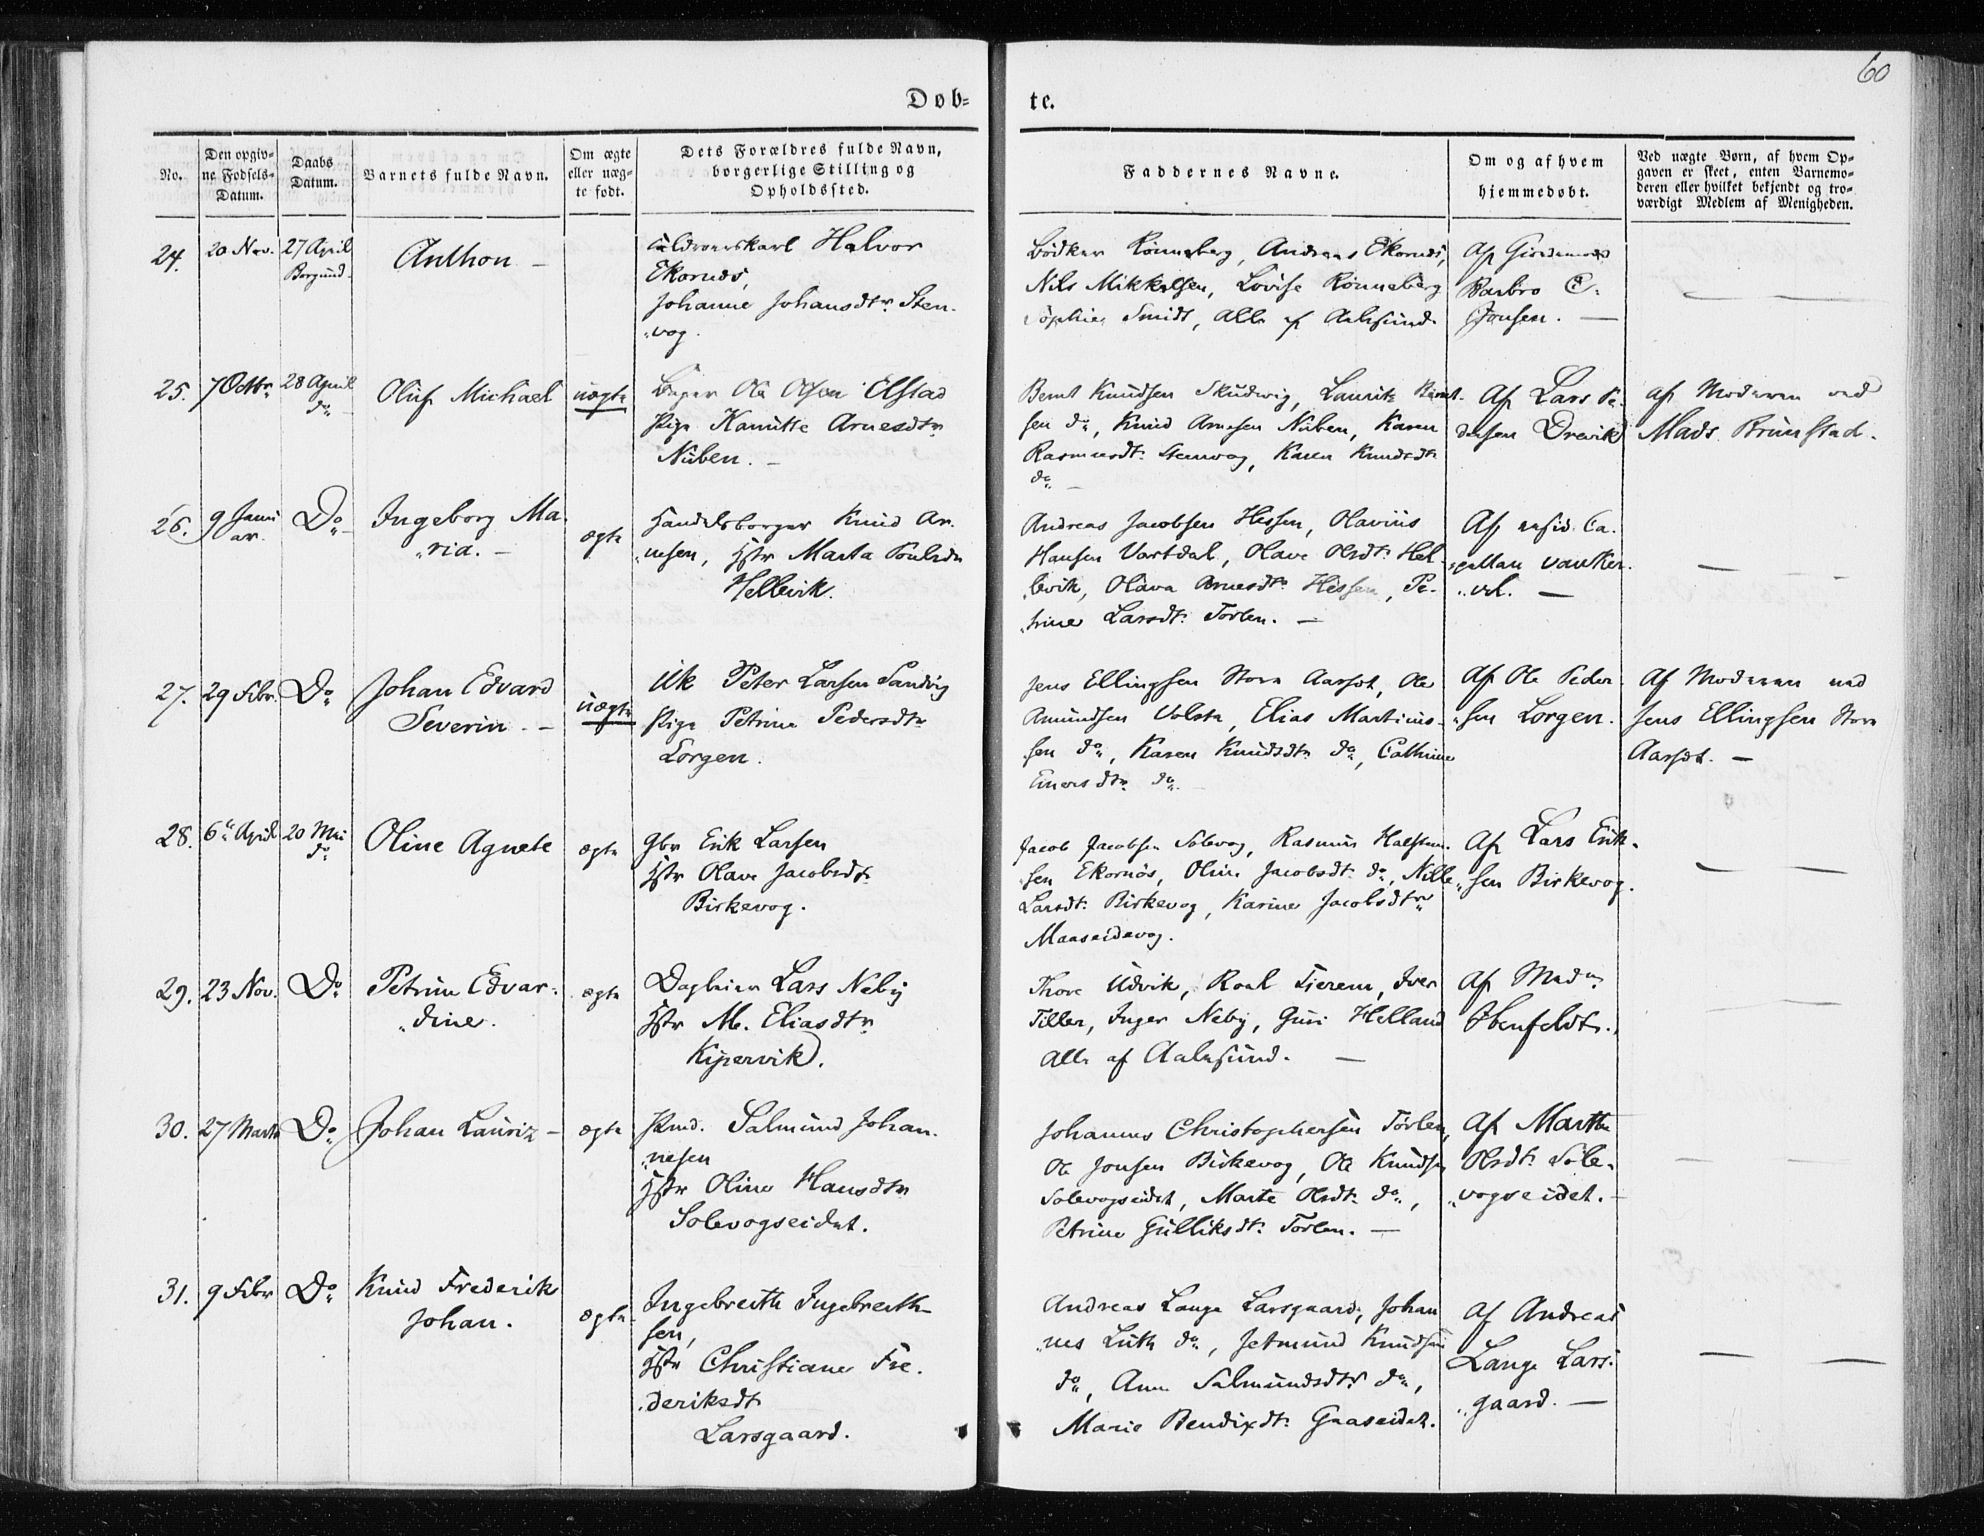 60
Døb-
te.
No.
Den opgiv-
ne Fødsels-
Datum.
Daabs
Datum.
Barnets fulde Navn.
Om ægte
eller uæg-
te født.
Dets Forældres fulde Navn,
borgerlige Stilling og
Opholdssted.
Faddernes Navne.
Om og af hvem
hjemmedøbt.
Ved uægte Børn, af hvem Op-
gaven er skeet, enten Barnemo-
deren eller hvilket bekjendt og tro-
værdigt Medlem af Menigheden.
24.
20 Nov.
27 April
Borgund
Anthon
Halvor
Ekornes,
Johanne Johansdtr Sten-
vog.
Bødker Rønneberg, Andreas Ekornes,
Nils Mikkelsen, Lovise Rønneberg
Sophie Smidt, alle af Aalesund.
Af
Barbro E.
Jonsen.
25.
7 Octbr
28 April
do
Oluf Michael
uægte
Ole Olsen Elstad
Pige Kanutte Arnesdtr
Nuben.
Bernt Knudsen Skudvig, Lauritz Bernt-
sen do, Knud Arnesen Nuben, Karen
Rasmusdtr Stenvog, Karen Knudsdtr
do
Af Lars Pe-
dersen Drevik
af Moderen ved
Mads Brunstad.
26.
9 Janu
ar.
Do
Ingeborg Ma-
ria.
ægte
Handelsborger Knud Ar-
nesen, Hstr Marta Poulsdtr
Hellevik.
Andreas Jacobsen Hessen, Olavius
Hansen Vartdal, Olave Olsdtr Hel-
levik, Olava Arnesdtr Hessen, Pe-
trine Larsdtr Tørlen.
Af resid. Ca-
pellan
27.
29 Febr.
Do
Johan Edvard
Severin.
uægte
Uk Peter Larsen Sandvig
Pige Petrine Pedersdtr
Lorgen.
Jens Ellingsen Store Aarset, Ole
Amundsen Volsta, Elias Martinus-
sen do, Karen Knudsdtr do, Cathrine
do
Af Ole Peder-
sen Lorgen.
Af Moderen ved
Jens Ellingsen Store
Aarset.
28.
6te April
20 Mai
do
Oline Agnete
ægte
Gbr Erik Larsen
Hstr Olave Jacobsdtr
Birkevog.
Jacob Jacobsen Solevog, Rasmus Halsten-
sen Ekornes, Oline Jacobsdtr do, Nille
Larsdtr Birkevog, Karine Jacobsdtr
Maaseidevog.
Af Lars Erik-
sen Birkevog.
29.
23 Nov.
Do
Petrine Edvar-
dine.
ægte
Dagleier Lars Neby
Hstr M. Eliasdtr
Kipervik.
Thore Udvik, Roal Tierem, Iver
Tiller, Inger Neby, Guri Helland
alle af Aalesund.
Af Mad.
Ibenfeldt.
30.
27 Marts
Do
Johan Lauriz
ægte
Pmd. Salmund Johan-
nesen
Hstr Oline Hansdtr
Solevogseidet.
Johannes Christophersen Tørlen,
Ole Jonsen Birkevog, Ole Knudsen
Solevogseidet, Marte Olsdtr do,
Petrine Gulliksdtr Tørlen.
Af Marthe
Olsdtr Sole-
vogseidet.
31.
9 Febr
Do
Knud Frederik
Johan.
ægte
Ingebreth Ingebreth-
sen,
Hstr Christiane Fre-
deriksdt
Larsgaard.
Andreas Lange Larsgaard, Johan
nes Luth do, Jetmund Knudsen
do, Ane Salmundsdtr do,
Marie Bendixdtr Gaaseidet.
Af Andreas
Lange Lars-
gaard.